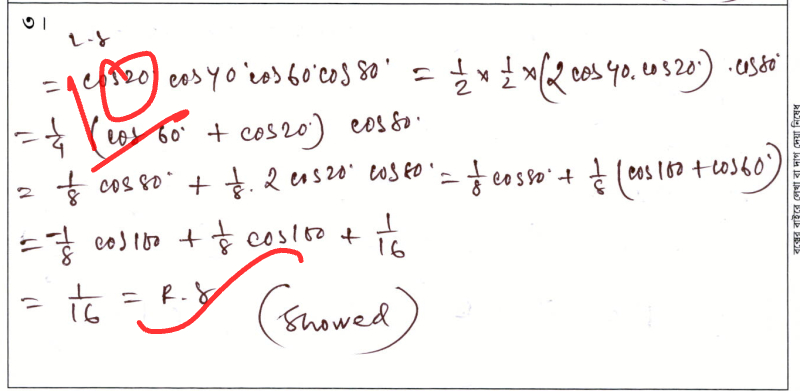 ৩।
L.S
= cos20° cos40° cos60° cos80° = 1/2 × 1/2 × (2 cos40. cos20°) . cos80°
= 1/4 (cos 60° + cos20°) cos80°
= 1/8 cos80° + 1/8 . 2 cos20° cos80° = 1/8 cos80° + 1/8 (cos100 + cos60°)
= -1/8 cos100 + 1/8 cos100 + 1/16
= 1/16 = R.S (Showed)
বক্সের বাইরে লেখা বা দাগ দেয়া নিষেধ